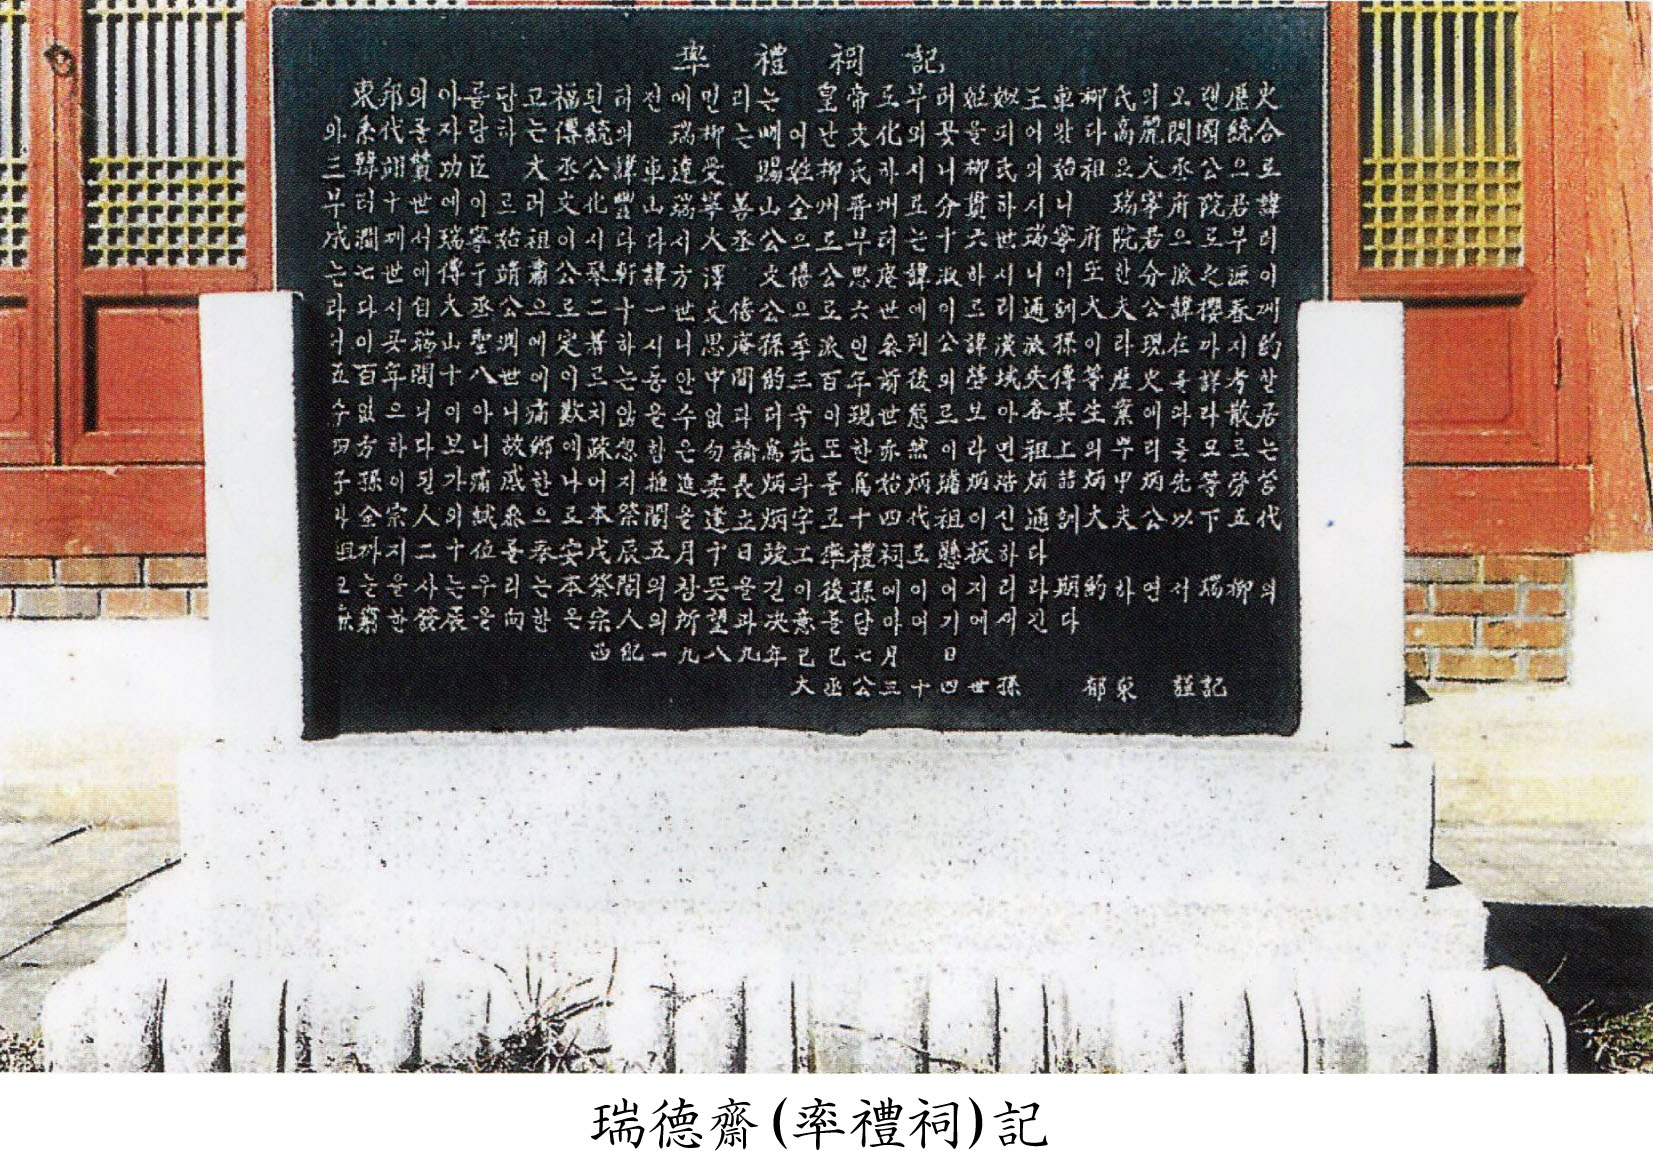 率禮祠記
東邦의 아름답고 福된 터전에 먼리는 皇帝로부터 姬姒王車柳氏의 오랜 歷史
와 系代를 자랑하는 傳統의 瑞柳는 빼어난 文化의 꽃을 피어왔다 高麗開國統合
三韓翊贊功臣 大丞公諱車達受 賜姓柳氏하시니 柳氏의 始祖요 大丞公으로
부터 十世에 이르러 文化豐山瑞寧善山全州晋州로 分貫하시니 瑞寧府院君諱
成澗께서 瑞寧始祖이시다 다시 大丞公으로부터는 十六世 瑞寧府院君으로부터
는 七世에 傳于靖肅公琴軒諱方澤 文僖公思庵諱淑하시니 이 또한 分派之源이
라 다시 自大丞公으로 二十一世 文僖公으로 六世에 이르러 通訓大夫公諱櫻春께
서 이곳 瑞山聖淵에 定着하시니 思庵孫季派인 參判公諱漢派孫이라 現在까지 約
五百年間 十八世에 이르는 동안 中間 約三百年 前後의 塋域失傳等 歷史를 詳考할
수 없으니 이 아니 痛歎치 않을 수 없다 더욱이 現世態로 보아 各其生業에 따라 散居
四方하다 보니 故鄕에 疎忽함은 勿論 爲先 또한 亦然이라 면 祖上의 뿌리를 모르는
子孫이 될가 痛感한 나머지 推進委長 炳斗를 爲始 炳璿 炳浩 炳喆 炳中 炳先 等 勞營
나 全宗人의 誠參으로 本祭閣을 建立 炳字로 十四代祖이신 通訓大夫公 以下 五代
祖까지 二十位를 奉安 戊辰五月十日 竣工 率禮祠로 懸板하다
오늘을 사는 우리는 本祭閣의 참뜻을 길이 後孫에 이어지리라 期約하면서 瑞柳의
無窮한 發展을 向한 온 宗人의 所望과 決意를 담아 여기에 새긴다
西紀一九八九年己巳七月 日
大丞公三十四世孫 郁泉 謹記
瑞德齋(率禮祠)記